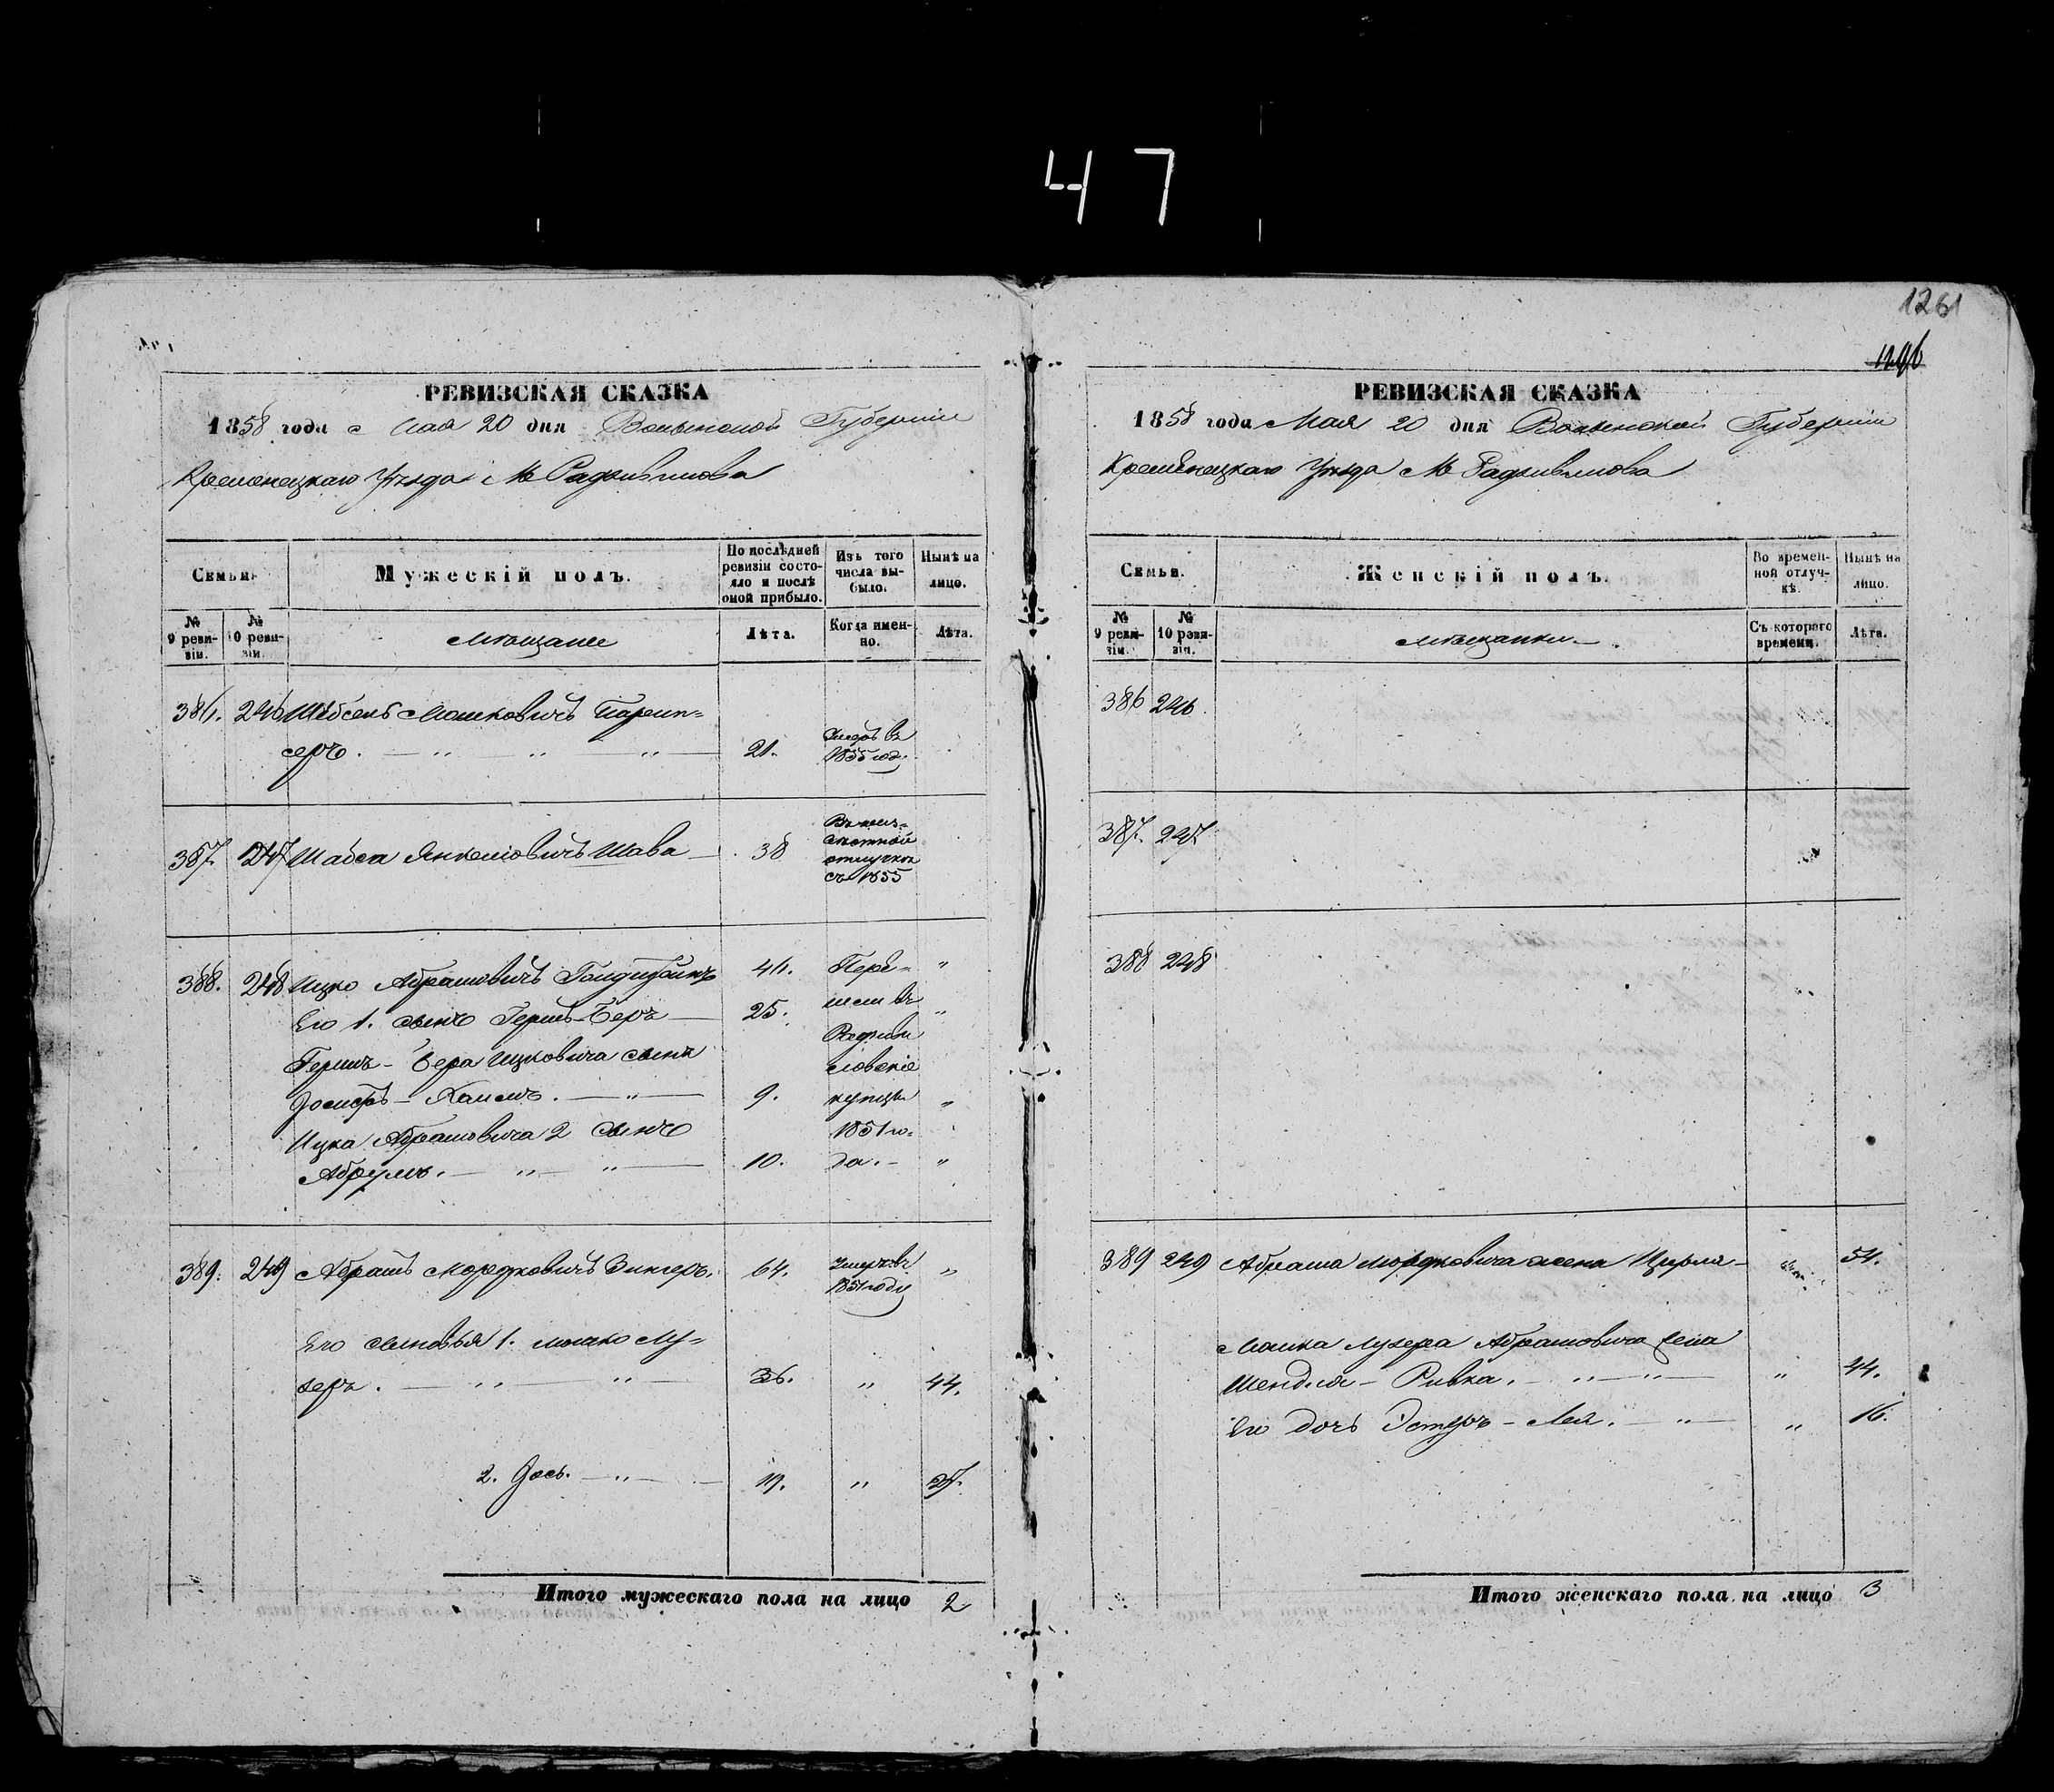 47
1261
1246
РЕВИЗСКАЯ СКАЗКА
1858 года Мая 20 дня Волынской Губерніи
Кременецкаго Уѣзда М Радзивилова
Семьи.
Мужескій полъ.
По послѣдней ревизіи состояло и послѣ оной прибыло.
Изъ того числа выбыло.
Нынѣ на лицо.
№ 9 ревизіи.
№ 10 ревизіи.
Мѣщане
Лѣта.
Когда именно.
Лѣта.
386. 246 Шебсель Мошковичъ
серъ. 21. Умеръ въ 1855 год.
387. 247 Шабса Янкелiовичъ Шава 38 Въ безъ-
вѣстной
отлучкѣ
съ 1855
388. 248 Ицко Абрамовичъ 46. Пере-
Его 1. сынъ Гершъ-Беръ 25. шли въ
Гершъ-Бера Ицковича сынъ Радзиви
ловскіе
Іосифъ-Хаимъ. 9. купцы
Ицка Абрамовича 2 сынъ 1851 го-
Абрумъ. 10. да.
389. 249 Абрамъ Мордковичъ Зингеръ. 64. Умеръ въ
1851 году
Его сыновья 1. Мошко Лу-
зеръ. 36. 44.
2. Іось. 19. 27.
Итого мужескаго пола на лицо 2
РЕВИЗСКАЯ СКАЗКА
1858 года Мая 20 дня Волынской Губерніи
Кременецкаго Уѣзда М Радзивилова
Семьи.
Женскій полъ.
Во временной отлучкѣ.
Нынѣ на лицо.
№ 9 ревизіи.
№ 10 ревизіи.
Мѣщанки
Съ котораго времени.
Лѣта.
386 246
387. 247
388 248
389 249 Абрама Мордковича жена Цирля 54.
Мошка Лузера Абрамовича жена
Шендля - Ривка. 44.
Его дочь Эстеръ - Лея. 16.
Итого женскаго пола на лицо 3